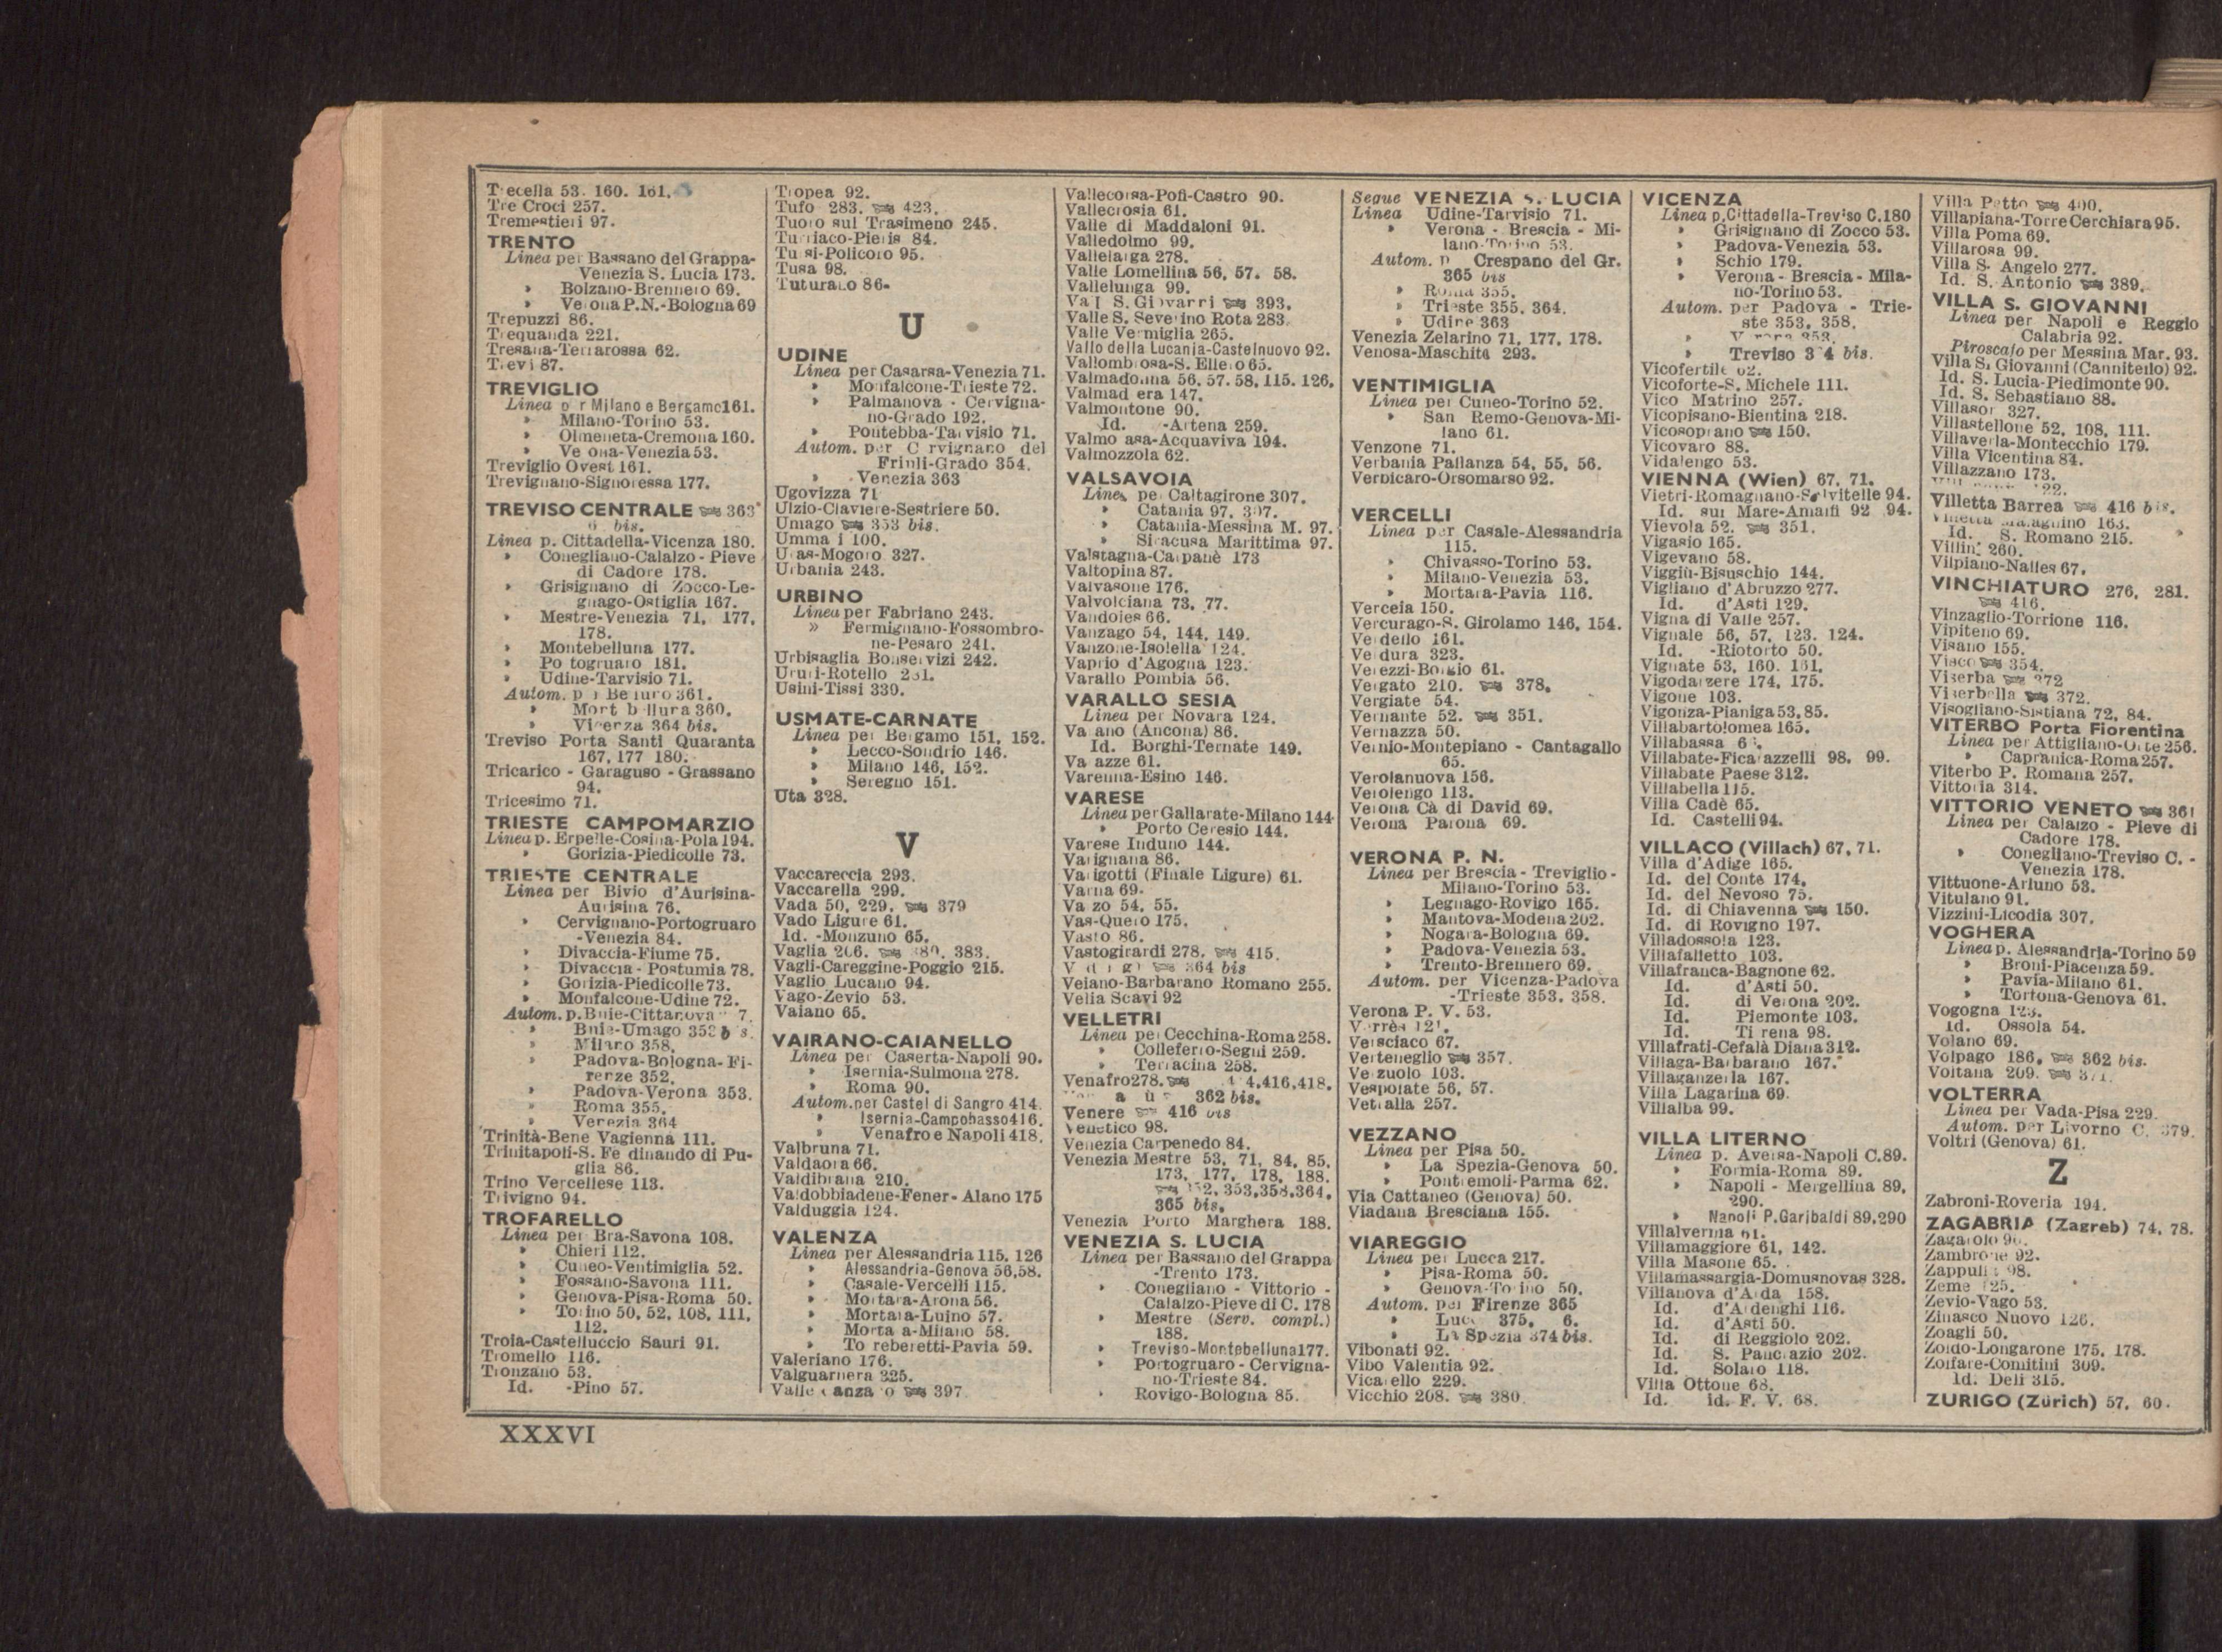 Trecella 53. 160. 161.
Tre Croci 257.
Tremestieri 97.
TRENTO
Linea per Bassano del Grappa-
Venezia S. Lucia 173.
» Bolzano-Brennero 69.
» Verona P.N.-Bologna 69
Trepuzzi 86.
Trequanda 221.
Tresana-Terrarossa 62.
Trevi 87.
TREVIGLIO
Linea per Milano e Bergamo 161.
» Milano-Torino 53.
» Olmeneta-Cremona 160.
» Verona-Venezia 53.
Treviglio Ovest 161.
Trevignano-Signoressa 177.
TREVISO CENTRALE 363
bis.
Linea p. Cittadella-Vicenza 180.
» Conegliano-Calalzo - Pieve
di Cadore 178.
» Grisignano di Zocco-Le-
gnago-Ostiglia 167.
» Mestre-Venezia 71, 177,
178.
» Montebelluna 177.
» Portogruaro 181.
» Udine-Tarvisio 71.
Autom. per Belluno 361.
» Montebellura 360.
» Vicenza 364 bis.
Treviso Porta Santi Quaranta
167, 177 180.
Tricarico - Garaguso - Grassano
94.
Tricesimo 71.
TRIESTE CAMPOMARZIO
Linea p. Erpelle-Cosina-Pola 194.
» Gorizia-Piedicolle 73.
TRIESTE CENTRALE
Linea per Bivio d'Aurisina-
Aurisina 76.
» Cervignano-Portogruaro
-Venezia 84.
» Divaccia-Fiume 75.
» Divaccia - Postumia 78.
» Gorizia-Piedicolle 73.
» Monfalcone-Udine 72.
Autom. p. Buie-Cittanova
» Buie-Umago 353 bis.
» Milano 358.
» Padova-Bologna-Fi-
renze 352.
» Padova-Verona 353.
» Roma 355.
» Venezia 364
Trinità-Bene Vagienna 111.
Trinitapoli-S. Ferdinando di Pu-
glia 86.
Trino Vercellese 113.
Trivigno 94.
TROFARELLO
Linea per Bra-Savona 108.
» Chieri 112.
» Cuneo-Ventimiglia 52.
» Fossano-Savona 111.
» Genova-Pisa-Roma 50.
» Torino 50, 52, 108, 111,
112.
Troia-Castelluccio Sauri 91.
Tromello 116.
Tronzano 53.
Id. -Pino 57.
Tropea 92.
Tufo 283. 423.
Tuoro sul Trasimeno 245.
Turriaco-Pieris 84.
Tursi-Policoro 95.
Tusa 98.
Tuturano 86.
U
UDINE
Linea per Casarsa-Venezia 71.
» Monfalcone-Trieste 72.
» Palmanova - Cervigna-
no-Grado 192.
» Pontebba-Tarvisio 71.
Autom. per Cervignano del
Friuli-Grado 354.
» Venezia 363
Ugovizza 71
Ulzio-Claviere-Sestriere 50.
Umago 353 bis.
Umma i 100.
Uras-Mogoro 327.
Urbania 243.
URBINO
Linea per Fabriano 243.
» Fermignano-Fossombro-
ne-Pesaro 241.
Urbisaglia Bonservizi 242.
Ururi-Rotello 281.
Usini-Tissi 339.
USMATE-CARNATE
Linea per Bergamo 151, 152.
» Lecco-Sondrio 146.
» Milano 146, 152.
» Seregno 151.
Uta 328.
V
Vaccareccia 293.
Vaccarella 299.
Vada 50, 229. 379
Vado Ligure 61.
Id. -Monzuno 65.
Vaglia 206. 380, 383.
Vagli-Careggine-Poggio 215.
Vaglio Lucano 94.
Vago-Zevio 53.
Vaiano 65.
VAIRANO-CAIANELLO
Linea per Caserta-Napoli 90.
» Isernia-Sulmona 278.
» Roma 90.
Autom. per Castel di Sangro 414.
» Isernia-Campobasso 416.
» Venafro e Napoli 418.
Valbruna 71.
Valdaora 66.
Valdibrana 210.
Valdobbiadene-Fener-Alano 175
Valduggia 124.
VALENZA
Linea per Alessandria 115, 126
» Alessandria-Genova 56,58.
» Casale-Vercelli 115.
» Mortara-Arona 56.
» Mortara-Luino 57.
» Mortara-Milano 58.
» Torreberetti-Pavia 59.
Valeriano 176.
Valguarnera 325.
Valle 397.
Vallecorsa-Pofi-Castro 90.
Vallecrosia 61.
Valle di Maddaloni 91.
Valledolmo 99.
Vallelarga 278.
Valle Lomellina 56, 57. 58.
Vallelunga 99.
Val S. Giovanni 393.
Valle S. Severino Rota 283.
Valle Vermiglia 265.
Vallo della Lucania-Castelnuovo 92.
Vallombrosa-S. Ellero 65.
Valmadonna 56, 57. 58, 115. 126.
Valmadrera 147.
Valmontone 90.
Id. -Artena 259.
Valmorasa-Acquaviva 194.
Valmozzola 62.
VALSAVOIA
Linea per Caltagirone 307.
» Catania 97, 307.
» Catania-Messina M. 97.
» Siracusa Marittima 97.
Valstagna-Carpanè 173
Valtopina 87.
Valvasone 176.
Valvolciana 73, 77.
Vandoies 66.
Vanzago 54, 144, 149.
Vanzone-Isolella 124.
Vaprio d'Agogna 123.
Varallo Pombia 56.
VARALLO SESIA
Linea per Novara 124.
Varano (Ancona) 86.
Id. Borghi-Ternate 149.
Varazze 61.
Varenna-Esino 146.
VARESE
Linea per Gallarate-Milano 144
» Porto Ceresio 144.
Varese Induno 144.
Varignana 86.
Varigotti (Finale Ligure) 61.
Varna 69.
Varzo 54, 55.
Vas-Quero 175.
Vasto 86.
Vastogirardi 278. 415.
364 bis
Veiano-Barbarano Romano 255.
Velia Scavi 92
VELLETRI
Linea per Cecchina-Roma 258.
» Colleferro-Segni 259.
» Terracina 258.
Venafro 278. 416, 418.
362 bis.
Venere 416 bis
Venetico 98.
Venezia Carpenedo 84.
Venezia Mestre 53, 71, 84, 85,
173, 177, 178, 188.
352, 353, 358, 364,
365 bis.
Venezia Porto Marghera 188.
VENEZIA S. LUCIA
Linea per Bassano del Grappa
-Trento 173.
» Conegliano - Vittorio -
Calalzo-Pieve di C. 178
» Mestre (Serv. compl.)
188.
» Treviso-Montebelluna 177.
» Portogruaro - Cervigna-
no-Trieste 84.
» Rovigo-Bologna 85.
Segue VENEZIA S. LUCIA
Linea Udine-Tarvisio 71.
» Verona - Brescia - Mi-
lano-Torino 53.
Autom. p Crespano del Gr.
365 bis
» Roma 355.
» Trieste 355, 364.
» Udine 363
Venezia Zelarino 71, 177, 178.
Venosa-Maschito 293.
VENTIMIGLIA
Linea per Cuneo-Torino 52.
» San Remo-Genova-Mi-
lano 61.
Venzone 71.
Verbania Pallanza 54, 55, 56.
Verbicaro-Orsomarso 92.
VERCELLI
Linea per Casale-Alessandria
115.
» Chivasso-Torino 53.
» Milano-Venezia 53.
» Mortara-Pavia 116.
Verceia 150.
Vercurago-S. Girolamo 146, 154.
Verdello 161.
Verdura 323.
Verezzi-Borgio 61.
Vergato 210. 378.
Vergiate 54.
Vernante 52. 351.
Vernazza 50.
Vernio-Montepiano - Cantagallo
65.
Verolanuova 156.
Verolengo 113.
Verona Cà di David 69.
Verona Parona 69.
VERONA P. N.
Linea per Brescia - Treviglio -
Milano-Torino 53.
» Legnago-Rovigo 165.
» Mantova-Modena 202.
» Nogara-Bologna 69.
» Padova-Venezia 53.
» Trento-Brennero 69.
Autom. per Vicenza-Padova
-Trieste 353, 358.
Verona P. V. 53.
Verrès 121.
Versciaco 67.
Verteneglio 357.
Verzuolo 103.
Vespolate 56, 57.
Vetralla 257.
VEZZANO
Linea per Pisa 50.
» La Spezia-Genova 50.
» Pontremoli-Parma 62.
Via Cattaneo (Genova) 50.
Viadana Bresciana 155.
VIAREGGIO
Linea per Lucca 217.
» Pisa-Roma 50.
» Genova-Torino 50.
Autom. per Firenze 365
» Lucca 375,
» La Spezia 374 bis.
Vibonati 92.
Vibo Valentia 92.
Vicarello 229.
Vicchio 208. 380.
VICENZA
Linea p. Cittadella-Treviso C. 180
» Grisignano di Zocco 53.
» Padova-Venezia 53.
» Schio 179.
» Verona - Brescia - Mila-
no-Torino 53.
Autom. per Padova - Trie-
ste 353, 358.
» Verona 353.
» Treviso 364 bis.
Vicofertile 62.
Vicoforte-S. Michele 111.
Vico Matrino 257.
Vicopisano-Bientina 218.
Vicosoprano 150.
Vicovaro 88.
Vidalengo 53.
VIENNA (Wien) 67, 71.
Vietri-Romagnano-Salvitelle 94.
Id. sul Mare-Amalfi 92 94.
Vievola 52. 351.
Vigasio 165.
Vigevano 58.
Viggiù-Bisuschio 144.
Vigliano d'Abruzzo 277.
Id. d'Asti 129.
Vigna di Valle 257.
Vignale 56, 57, 123. 124.
Id. -Riotorto 50.
Vignate 53, 160. 161.
Vigodarzere 174, 175.
Vigone 103.
Vigonza-Pianiga 53, 85.
Villabartolomea 165.
Villabassa
Villabate-Ficarazzelli 98, 99.
Villabate Paese 312.
Villabella 115.
Villa Cadè 65.
Id. Castelli 94.
VILLACO (Villach) 67, 71.
Villa d'Adige 165.
Id. del Conte 174.
Id. del Nevoso 75.
Id. di Chiavenna 150.
Id. di Rovigno 197.
Villadossola 123.
Villafalletto 103.
Villafranca-Bagnone 62.
Id. d'Asti 50.
Id. di Verona 202.
Id. Piemonte 103.
Id. Tirrena 98.
Villafrati-Cefalà Diana 312.
Villaga-Barbarano 167.
Villaganzerla 167.
Villa Lagarina 69.
Villalba 99.
VILLA LITERNO
Linea p. Aversa-Napoli C. 89.
» Formia-Roma 89.
» Napoli - Mergellina 89,
290.
» Napoli P. Garibaldi 89, 290
Villalvernia 61.
Villamaggiore 61, 142.
Villa Masone 65.
Villamassargia-Domusnovas 328.
Villanova d'Arda 158.
Id. d'Ardenghi 116.
Id. d'Asti 50.
Id. di Reggiolo 202.
Id. S. Pancrazio 202.
Id. Solaro 118.
Villa Ottone 68.
Id. id. F. V. 68.
Villa Potto 400.
Villapiana-Torre Cerchiara 95.
Villa Poma 69.
Villarosa 99.
Villa S. Angelo 277.
Id. S. Antonio 389.
VILLA S. GIOVANNI
Linea per Napoli e Reggio
Calabria 92.
Piroscafo per Messina Mar. 93.
Villa S. Giovanni (Cannitello) 92.
Id. S. Lucia-Piedimonte 90.
Id. S. Sebastiano 88.
Villasor 327.
Villastellone 52, 108, 111.
Villaverla-Montecchio 179.
Villa Vicentina 84.
Villazzano 173.
Villetta Barrea 416 bis.
Villetta Malagnino 163.
Id. S. Romano 215.
Villing 260.
Vilpiano-Nalles 67.
VINCHIATURO 276, 281.
416.
Vinzaglio-Torrione 116.
Vipiteno 69.
Visano 155.
Visco 354.
Viserba 372
Viserbella 372.
Visogliano-Sistiana 72, 84.
VITERBO Porta Fiorentina
Linea per Attigliano-Orte 256.
» Capranica-Roma 257.
Viterbo P. Romana 257.
Vittoria 314.
VITTORIO VENETO 361
Linea per Calalzo - Pieve di
Cadore 178.
» Conegliano-Treviso C. -
Venezia 178.
Vittuone-Arluno 53.
Vitulano 91.
Vizzini-Licodia 307.
VOGHERA
Linea p. Alessandria-Torino 59
» Broni-Piacenza 59.
» Pavia-Milano 61.
» Tortona-Genova 61.
Vogogna 123.
Id. Ossola 54.
Volano 69.
Volpago 186. 362 bis.
Voltana 209. 371.
VOLTERRA
Linea per Vada-Pisa 229.
Autom. per Livorno C. 379.
Voltri (Genova) 61.
Z
Zabroni-Roveria 194.
ZAGABRIA (Zagreb) 74, 78.
Zagarolo 90.
Zambrone 92.
Zappulla 98.
Zeme 125.
Zevio-Vago 53.
Zinasco Nuovo 126.
Zoagli 50.
Zoldo-Longarone 175, 178.
Zolfare-Comitini 309.
Id. Deli 315.
ZURIGO (Zürich) 57, 60.
XXXVI